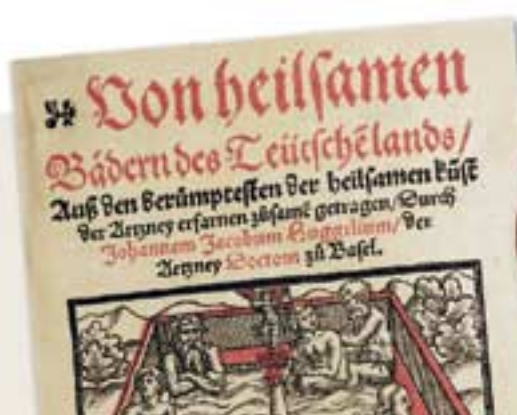 Von heilsamen
Bädern des Teütschēlands/
Auß den berümptesten der heilsamen kũst
der Artzney erfarnen zůsamē getragen/Durch
Johannem Jacobum Huggelium/der
Artzney Doctom zů Basel.